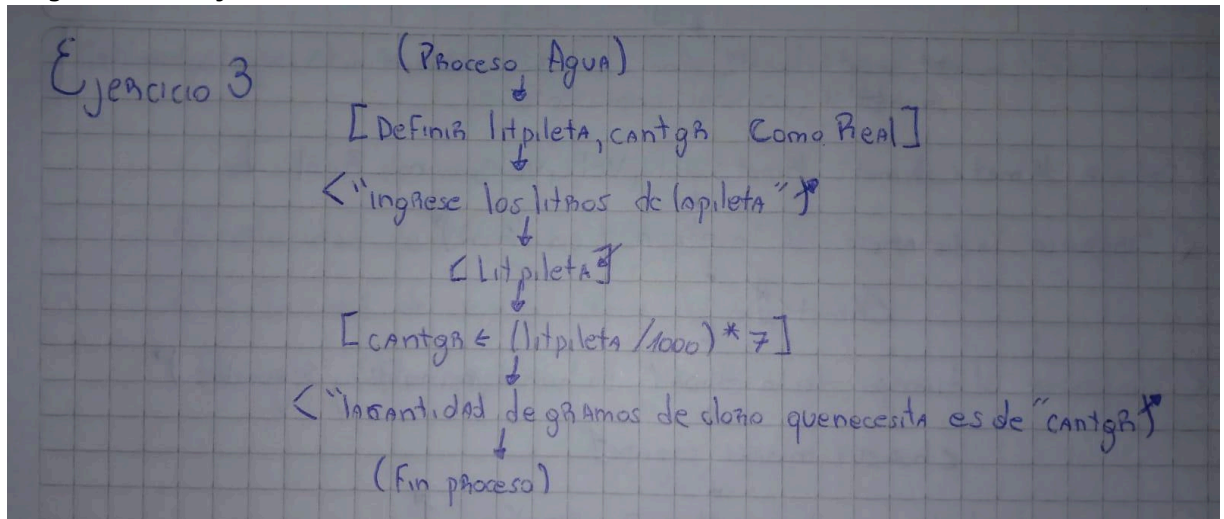 Ejercicio 3
(Proceso Agua)
[Definir litpileta, cantgr Como Real]
<"ingrese los litros de lapileta"
<litpileta
[cantgr ← (litpileta/1000) * 7]
<"la cantidad de gramos de cloro quenecesita es de "cantgr
(Fin proceso)